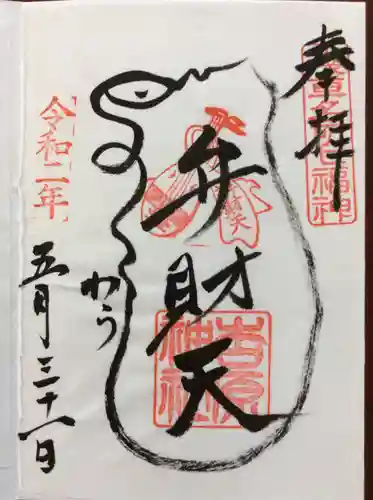 奉拝
弁財天
吉原
神社
わう
令和二年
五月三十一日